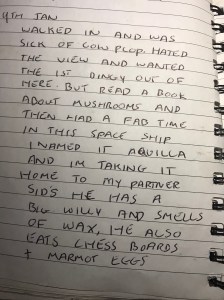 4TH JAN
WALKED IN AND WAS
SICK OF COW PLOP. HATED
THE VIEW AND WANTED
THE 1ST DINGY OUT OF
HERE. BUT READ A BOOK
ABOUT MUSHROOMS AND
THEN HAD A FAB TIME
IN THIS SPACE SHIP
I NAMED IT AQUILLA
AND IM TAKING IT
HOME TO MY PARTNER
SIDS HE HAS A
BIG WILLY AND SMELLS
OF WAX, HE ALSO
EATS CHESS BOARDS
+ MARMOT EGGS